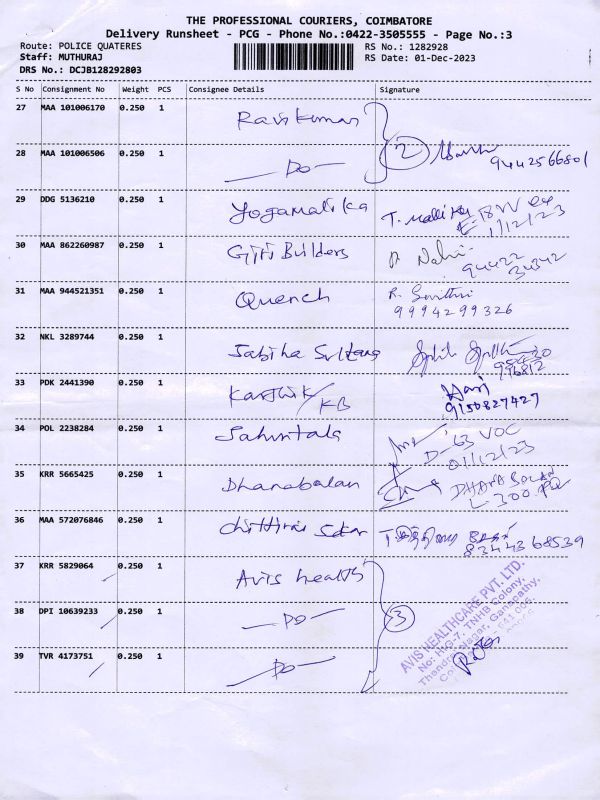 THE PROFESSIONAL COURIERS, COIMBATORE
Delivery Runsheet - PCG - Phone No.:0422-3505555 - Page No.:3
Route: POLICE QUATERES
RS No.: 1282928
Staff: MUTHURAJ
RS Date: 01-Dec-2023
DRS No.: DCJB128292803
S No Consignment No Weight PCS Consignee Details Signature
27 MAA 101006170 0.250 1 Ravikumar
28 MAA 101006506 0.250 1 — Do — 2 9442566801
29 DDG 5136210 0.250 1 Yogamalika T. Mallika
1/12/23
30 MAA 862260987 0.250 1 Giri Builders
94422
34342
31 MAA 944521351 0.250 1 Quench R. Savithri
9994299326
32 NKL 3289744 0.250 1 Sabiha Sultana
33 PDK 2441390 0.250 1 Karthik/KB Hari
9150827427
34 POL 2238284 0.250 1 Sakuntala D-63 VOC
01/12/23
35 KRR 5665425 0.250 1 Dhanabalan DHANABALAN
L-300
36 MAA 572076846 0.250 1
8344368539
37 KRR 5829064 0.250 1 Avis health
38 DPI 10639233 0.250 1 — Do — 3
39 TVR 4173751 0.250 1 — Do —
AVIS HEALTHCARE PVT. LTD.
No: HIG-7, TNHB Colony,
Nagar, Ganapathy,